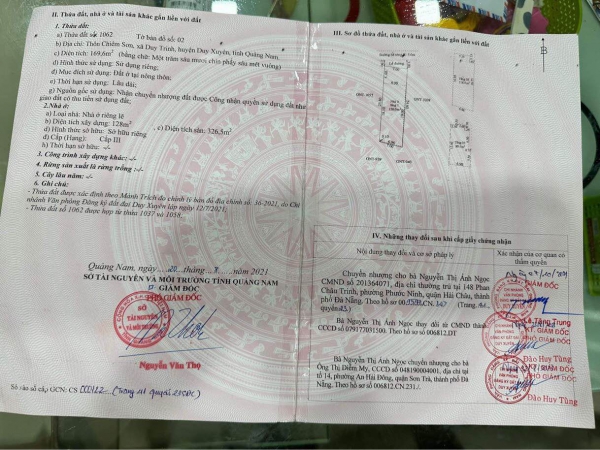 II. Thửa đất, nhà ở và tài sản khác gắn liền với đất
1. Thửa đất:
a) Thửa đất số: 1062 Tờ bản đồ số: 02
b) Địa chỉ: Thôn Chiêm Sơn, xã Duy Trinh, huyện Duy Xuyên, tỉnh Quảng Nam.
c) Diện tích: 169,6m² (bằng chữ: Một trăm sáu mươi chín phẩy sáu mét vuông)
d) Hình thức sử dụng: Sử dụng riêng;
đ) Mục đích sử dụng: Đất ở tại nông thôn;
e) Thời hạn sử dụng: Lâu dài;
g) Nguồn gốc sử dụng: Nhận chuyển nhượng đất được Công nhận quyền sử dụng đất như
giao đất có thu tiền sử dụng đất;
2.Nhà ở:
a) Loại nhà: Nhà ở riêng lẻ
b) Diện tích xây dựng: 128m² , c) Diện tích sàn: 326,5m²
d) Hình thức sở hữu: Sở hữu riêng
đ) Cấp (Hạng): Cấp III
h) Thời hạn sở hữu: -/-
3. Công trình xây dựng khác: -/-
4. Rừng sản xuất là rừng trồng: -/-
5. Cây lâu năm: -/-
6. Ghi chú:
- Thửa đất được xác định theo Mảnh Trích đo chỉnh lý bản đồ địa chính số: 36-2021, do Chi
nhánh Văn phòng Đăng ký đất đai Duy Xuyên lập ngày 12/7/2021;
- Thửa đất số 1062 được hợp từ thửa 1037 và 1058.
Quảng Nam, ngày 20 tháng 8 năm 2021
SỞ TÀI NGUYÊN VÀ MÔI TRƯỜNG TỈNH QUẢNG NAM
GIÁM ĐỐC
PHÓ GIÁM ĐỐC
SỞ
TÀI NGUYÊN
VÀ MÔI TRƯỜNG
Nguyễn Văn Thọ
Số vào sổ cấp GCN: CS
III. Sơ đồ thửa đất, nhà ở và tài sản khác gắn liền với đất
B
IV. Những thay đổi sau khi cấp giấy chứng nhận
Nội dung thay đổi và cơ sở pháp lý
Xác nhận của cơ quan có
thẩm quyền
Chuyển nhượng cho bà Nguyễn Thị Ánh Ngọc
CMND số 201364071, địa chỉ thường trú tại 148 Phan
Châu Trinh, phường Phước Ninh, quận Hải Châu, thành
phố Đà Nẵng. Theo hồ sơ
Lê Tăng Trung
KT. GIÁM ĐỐC
PHÓ GIÁM ĐỐC
Bà Nguyễn Thị Ánh Ngọc thay đổi từ CMND thành
CCCD số 079177031500. Theo hồ sơ số 006812.DT
Đào Huy Tùng
KT. GIÁM ĐỐC
PHÓ GIÁM ĐỐC
Bà Nguyễn Thị Ánh Ngọc chuyển nhượng cho bà
Ông Thị Diễm My, CCCD số 048190004001, địa chỉ tại
tổ 14, phường An Hải Đông, quận Sơn Trà, thành phố Đà
Nẵng. Theo hồ sơ số 006812.CN.231./.
Đào Huy Tùng